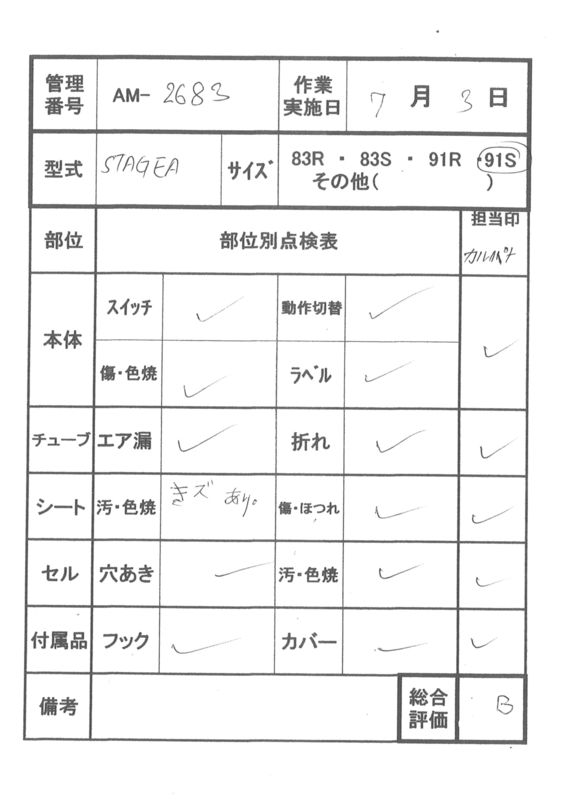 管理番号 AM- 2683 作業実施日 7月3日
型式 STAGEA サイズ 83R ・ 83S ・ 91R ・91S
その他( )
部位 部位別点検表 担当印
本体 スイッチ ✓ 動作切替 ✓ ✓
傷・色焼 ✓ ラベル ✓
チューブ エア漏 ✓ 折れ ✓ ✓
シート 汚・色焼 きズ あり。 傷・ほつれ ✓ ✓
セル 穴あき ✓ 汚・色焼 ✓ ✓
付属品 フック ✓ カバー ✓ ✓
備考 総合評価 B